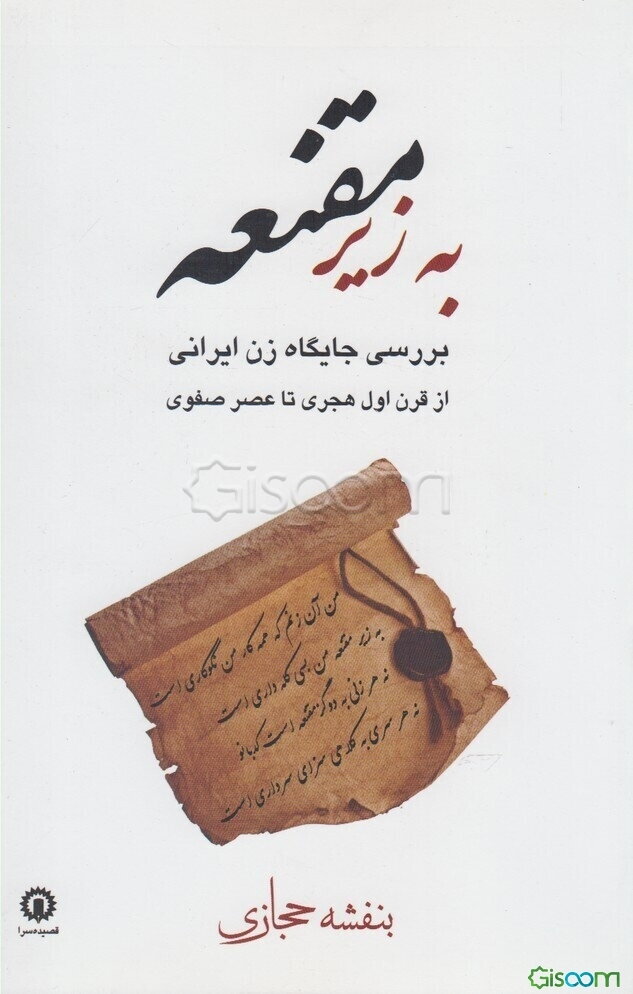 به زیر مقنعه
بررسی جایگاه زن ایرانی
از قرن اول هجری تا عصر صفوی
Gisoom
من آن زنم که همه کار من نکوکاری است
به زیر مقنعه من بسی کله داری است
نه هر زنی به دو گز مقنعه است کدبانو
نه هر سری به کلاهی سزای سرداری است
بنفشه حجازی
قصیده‌سرا
Gisoom